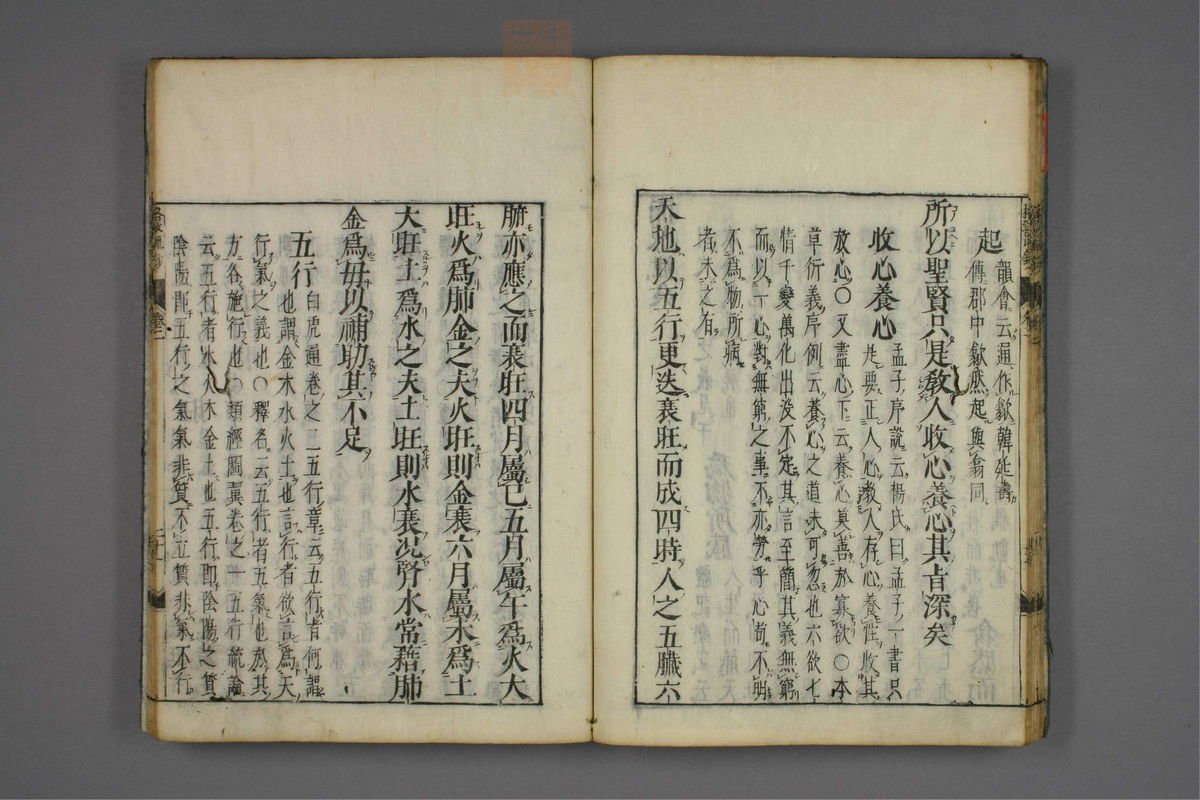 起 韻會云通作歘韓延壽
傳郡中歘然起與翕同
所以聖賢只是教人收心養心其旨深矣
收心養心 孟子序說云楊氏曰孟子一書只
是要正人心教人存心養性收其
放心○又盡心下云養心莫善於寡欲○本
草衍義序例云養心之道未可忽也六欲七
情千變萬化出没不定其言至簡其義無窮
而以一心對無窮之事不亦勞乎心苟不明
不為物所病
者未之有
天地以五行更迭衰旺而成四時人之五臟六
腑亦應之而衰旺四月屬巳五月屬午為火大
旺火為肺金之夫火旺則金衰六月屬未為土
大旺土為水之夫土旺則水衰況腎水常藉肺
金為母以補助其不足
五行 白虎通卷之二五行章云五行者何謂
也謂金木水火土也言行者欲言為天
行氣之義也○釋名云五行者五氣也於其
方各施行也○類經圖翼卷之一五行統論
云五行者水火木金土也五行即陰陽之質
陰陽即五行之氣氣非質不立質非氣不行